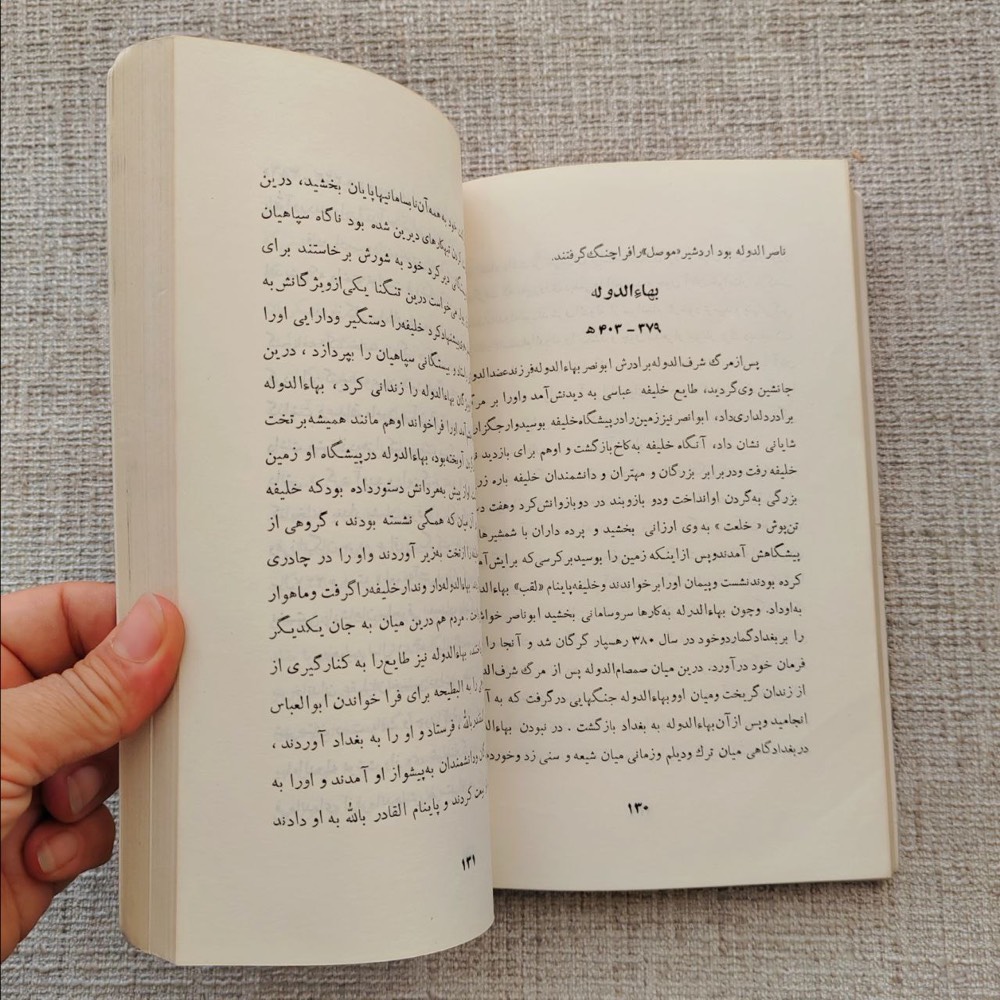 ناصرالدوله بود اردشیر «موصل» را فراچنگ گرفتند.
بهاءالدوله
۳۷۹ - ۴۰۳ ه
پس از مرگ شرف‌الدوله برادرش ابونصر بهاءالدوله فرزند عضدالدوله
جانشین وی گردید، طایع خلیفه عباسی به دیدنش آمد و او را بر مرگ
برادر دلداری داد، ابونصر نیز زمین را در پیشگاه خلیفه بوسید و
شایانی نشان داد، آنگاه خلیفه به کاخ بازگشت و او هم برای بازدید
خلیفه رفت و در برابر بزرگان و مهتران و دانشمندان خلیفه باره
بزرگی به گردن او انداخت و دو بازوبند در دو بازوانش کرد و هفت
تن‌پوش « خلعت » به وی ارزانی بخشید و پرده داران با شمشیرها
پیشگاهش آمدند و پس از اینکه زمین را بوسید بر کرسی که برایش
کرده بودند نشست و پیمان او را برخواندند و خلیفه پاینام «لقب»
به او داد. و چون بهاءالدوله به کارها سروسامانی بخشید ابوناصر
را بر بغداد گمارد و خود در سال ۳۸۰ رهسپار گرگان شد و آنجا را
فرمان خود درآورد. درین میان صمصام‌الدوله پس از مرگ
از زندان گریخت و میان او و بهاءالدوله جنگهایی درگرفت که به
انجامید و پس از آن بهاءالدوله به بغداد بازگشت . در نبودن
در بغداد گاهی میان ترک و دیلم و زمانی میان شیعه و سنی زد و خورد
۱۳۰
خود به همه آن نابسامانیها پایان بخشید، درین
تبهکارهای دیرین شده بود ناگاه سپاهیان
دیرکرد خود به شورش برخاستند برای
می‌خواست درین تنگنا یکی از ویژگانش به
پیشنهاد کرد خلیفه را دستگیر و دارایی او را
و بیستگانی سپاهیان را بپردازد ، درین
بهاءالدوله را زندانی کرد ، بهاءالدوله
او را فراخواند او هم مانند همیشه بر تخت
آویخته بود، بهاءالدوله در پیشگاه او زمین
از پیش به مردانش دستور داده بود که خلیفه
میان که همگی نشسته بودند ، گروهی از
را از تخت به زیر آوردند و او را در چادری
بهاءالدوله دار و ندار خلیفه را گرفت و ماهوار
مردم هم درین میان به جان یکدیگر
بهاءالدوله نیز طایع را به کنارگیری از
را به البطیحه برای فرا خواندن ابوالعباس
بالله ، فرستاد و او را به بغداد آوردند ،
ودانشمندان به پیشواز او آمدند و او را به
کردند و پاینام القادر بالله به او دادند
۱۳۱